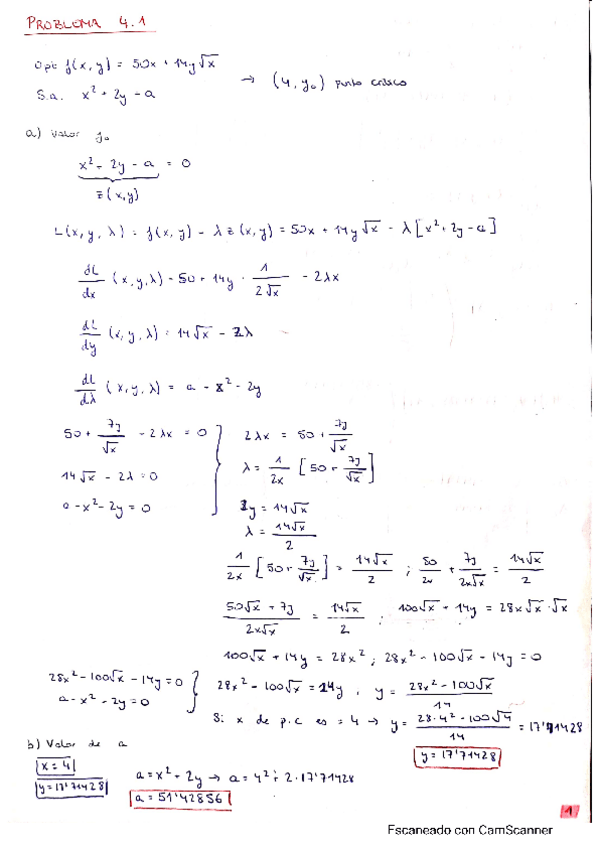 PROBLEMA 4.1
Opt f(x, y) = 50x + 14y√x
S.a. x² + 2y = a
→ (4, y₀) punto crítico
a) Valor y₀
x² + 2y - a = 0
z(x,y)
L(x, y, λ) = f(x, y) - λ z(x, y) = 50x + 14y√x - λ[x² + 2y - a]
dL/dx (x, y, λ) = 50 + 14y · 1/2√x - 2λx
dL/dy (x, y, λ) = 14√x - 2λ
dL/dλ (x, y, λ) = a - x² - 2y
50 + 7y/√x - 2λx = 0
14√x - 2λ = 0
a - x² - 2y = 0
2λx = 50 + 7y/√x
λ = 1/2x [50 + 7y/√x]
2y = 14√x
λ = 14√x/2
1/2x [50 + 7y/√x] = 14√x/2 ; 50/2x + 7y/2x√x = 14√x/2
50√x + 7y/2x√x = 14√x/2 ; 100√x + 14y = 28x√x · √x
100√x + 14y = 28x² ; 28x² - 100√x - 14y = 0
28x² - 100√x - 14y = 0
a - x² - 2y = 0
28x² - 100√x = 14y , y = 28x² - 100√x/14
Si x de p.c es = 4 → y = 28·4² - 100√4/14 = 17'71428
y = 17'71428
b) Valor de a
x = 4
y = 17'71428
a = x² + 2y → a = 4² + 2·17'71428
a = 51'42856
1
Escaneado con CamScanner